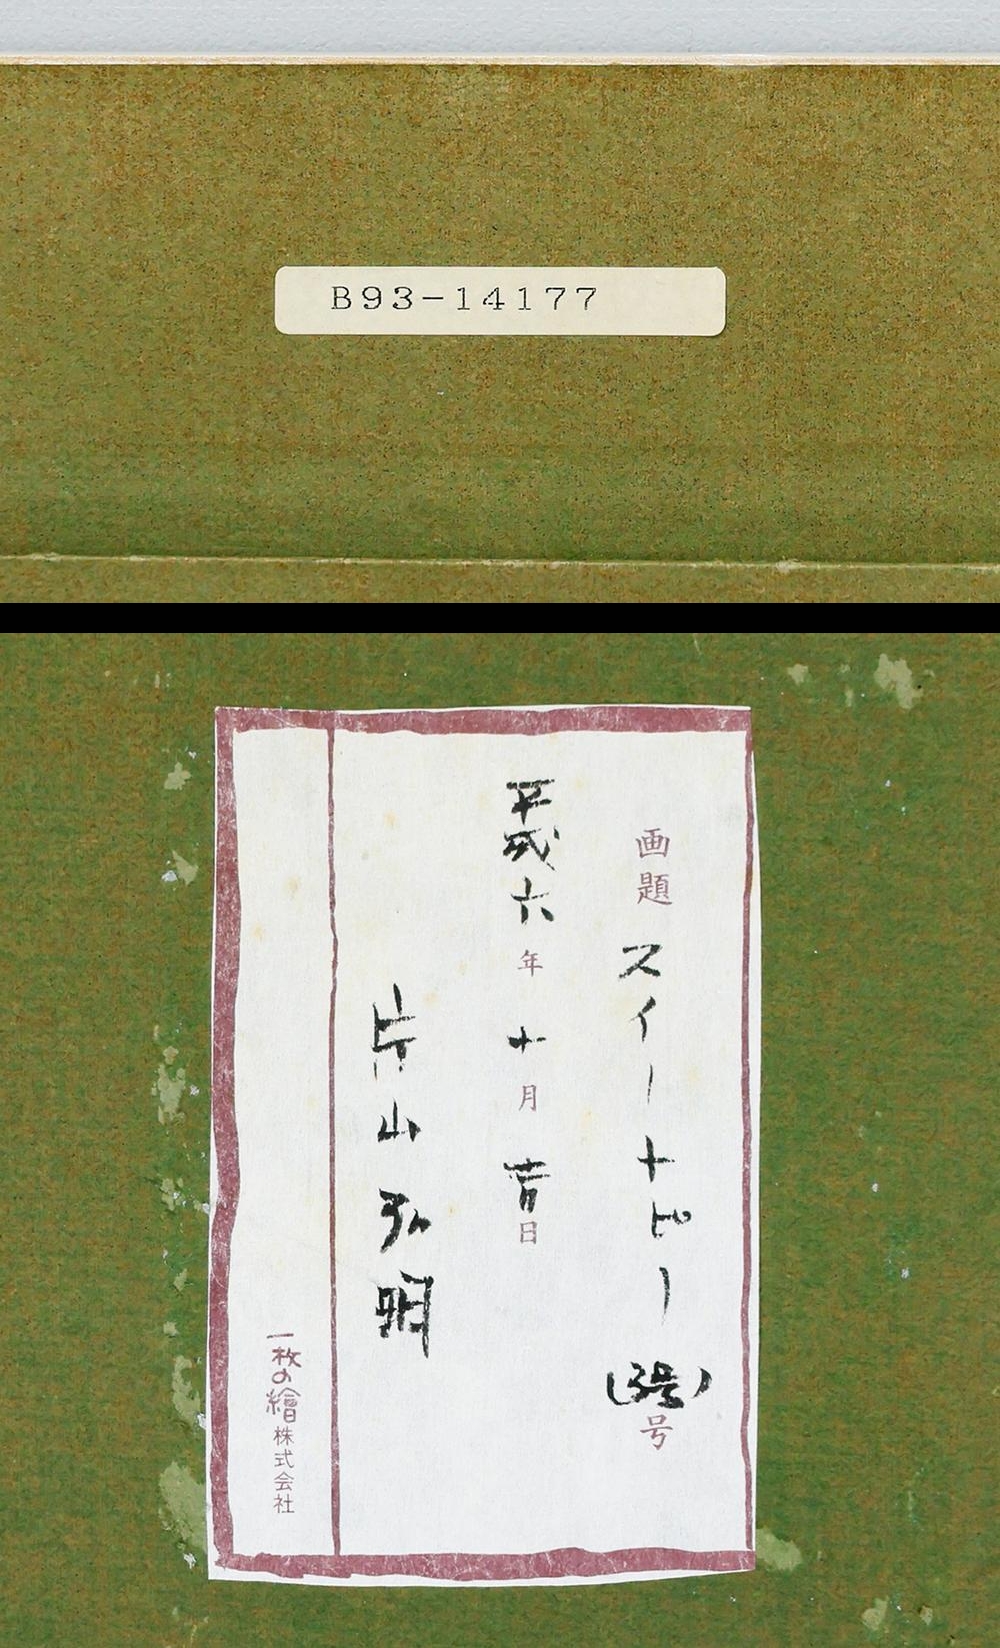 B93-14177
画題 スイートピー (3号)号
平成六年十月吉日
片山弘明
一枚の繪株式会社